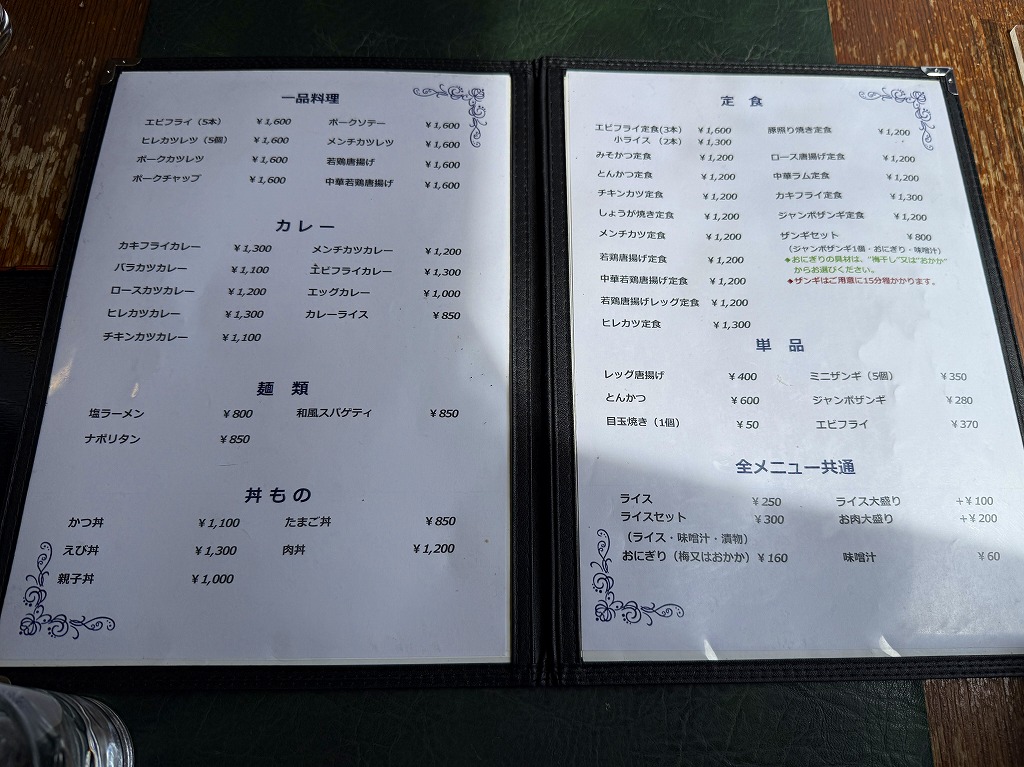 一品料理
エビフライ（5本） ￥1,600 ポークソテー ￥1,600
ヒレカツレツ（5個） ￥1,600 メンチカツレツ ￥1,600
ポークカツレツ ￥1,600 若鶏唐揚げ ￥1,600
ポークチャップ ￥1,600 中華若鶏唐揚げ ￥1,600
カレー
カキフライカレー ￥1,300 メンチカツカレー ￥1,200
バラカツカレー ￥1,100 エビフライカレー ￥1,300
ロースカツカレー ￥1,200 エッグカレー ￥1,000
ヒレカツカレー ￥1,300 カレーライス ￥850
チキンカツカレー ￥1,100
麺類
塩ラーメン ￥800 和風スパゲティ ￥850
ナポリタン ￥850
丼もの
かつ丼 ￥1,100 たまご丼 ￥850
えび丼 ￥1,300 肉丼 ￥1,200
親子丼 ￥1,000
定食
エビフライ定食(3本) ￥1,600 豚照り焼き定食 ￥1,200
小ライス （2本） ￥1,300
みそかつ定食 ￥1,200 ロース唐揚げ定食 ￥1,200
とんかつ定食 ￥1,200 中華ラム定食 ￥1,200
チキンカツ定食 ￥1,200 カキフライ定食 ￥1,300
しょうが焼き定食 ￥1,200 ジャンボザンギ定食 ￥1,200
メンチカツ定食 ￥1,200 ザンギセット ￥800
（ジャンボザンギ1個・おにぎり・味噌汁）
若鶏唐揚げ定食 ￥1,200 ◆おにぎりの具材は、"梅干し"又は"おかか"
からお選びください。
中華若鶏唐揚げ定食 ￥1,200 ◆ザンギはご用意に15分程かかります。
若鶏唐揚げレッグ定食 ￥1,200
ヒレカツ定食 ￥1,300
単品
レッグ唐揚げ ￥400 ミニザンギ（5個） ￥350
とんかつ ￥600 ジャンボザンギ ￥280
目玉焼き（1個） ￥50 エビフライ ￥370
全メニュー共通
ライス ￥250 ライス大盛り +￥100
ライスセット ￥300 お肉大盛り +￥200
（ライス・味噌汁・漬物）
おにぎり（梅又はおかか）￥160 味噌汁 ￥60